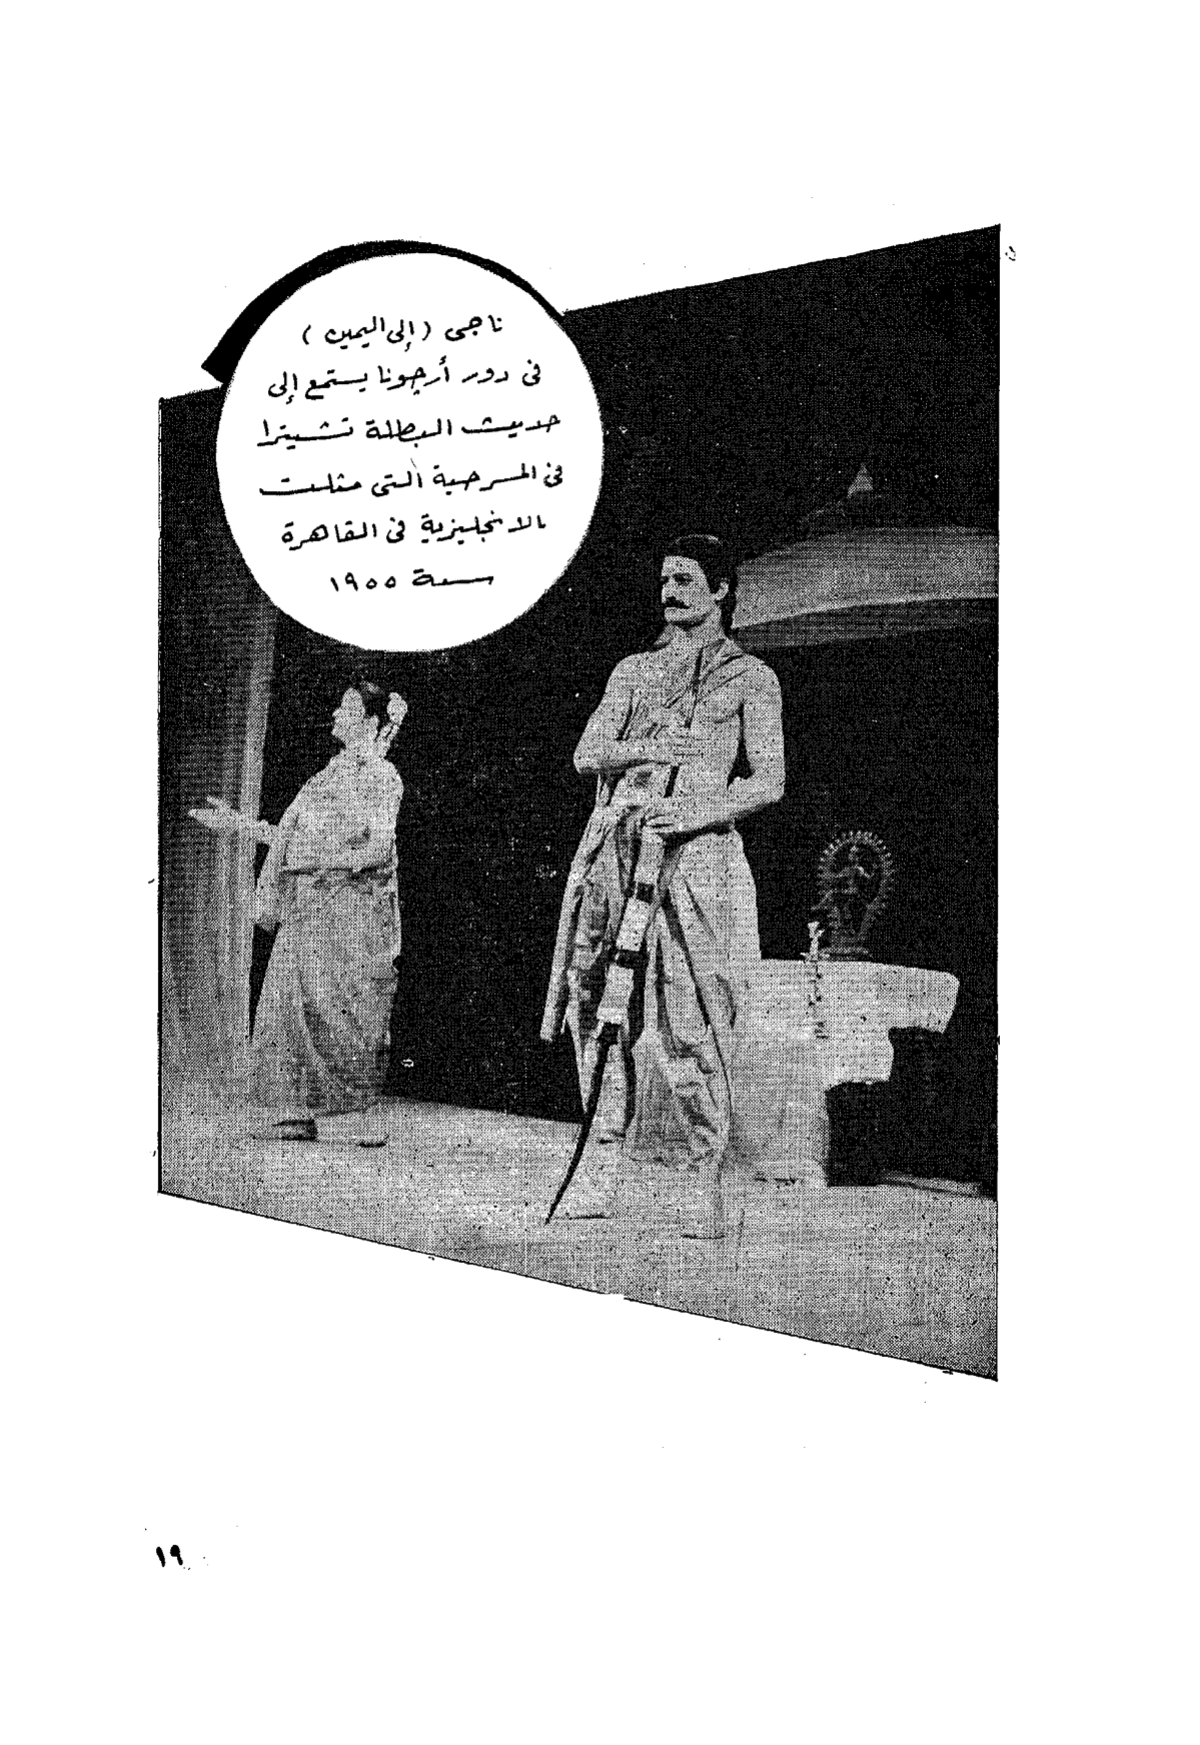 ناجى (إلى اليمين)
فى دور أرجونا يستمع إلى
حديث البطلة تشيترا
فى المسرحية التى مثلت
بالانجليزية فى القاهرة
سنة ١٩٥٥
١٩